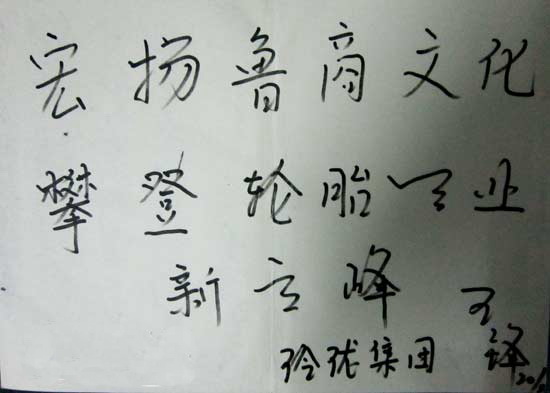 宏扬鲁商文化
攀登轮胎业
新高峰 王
玲珑集团 锋